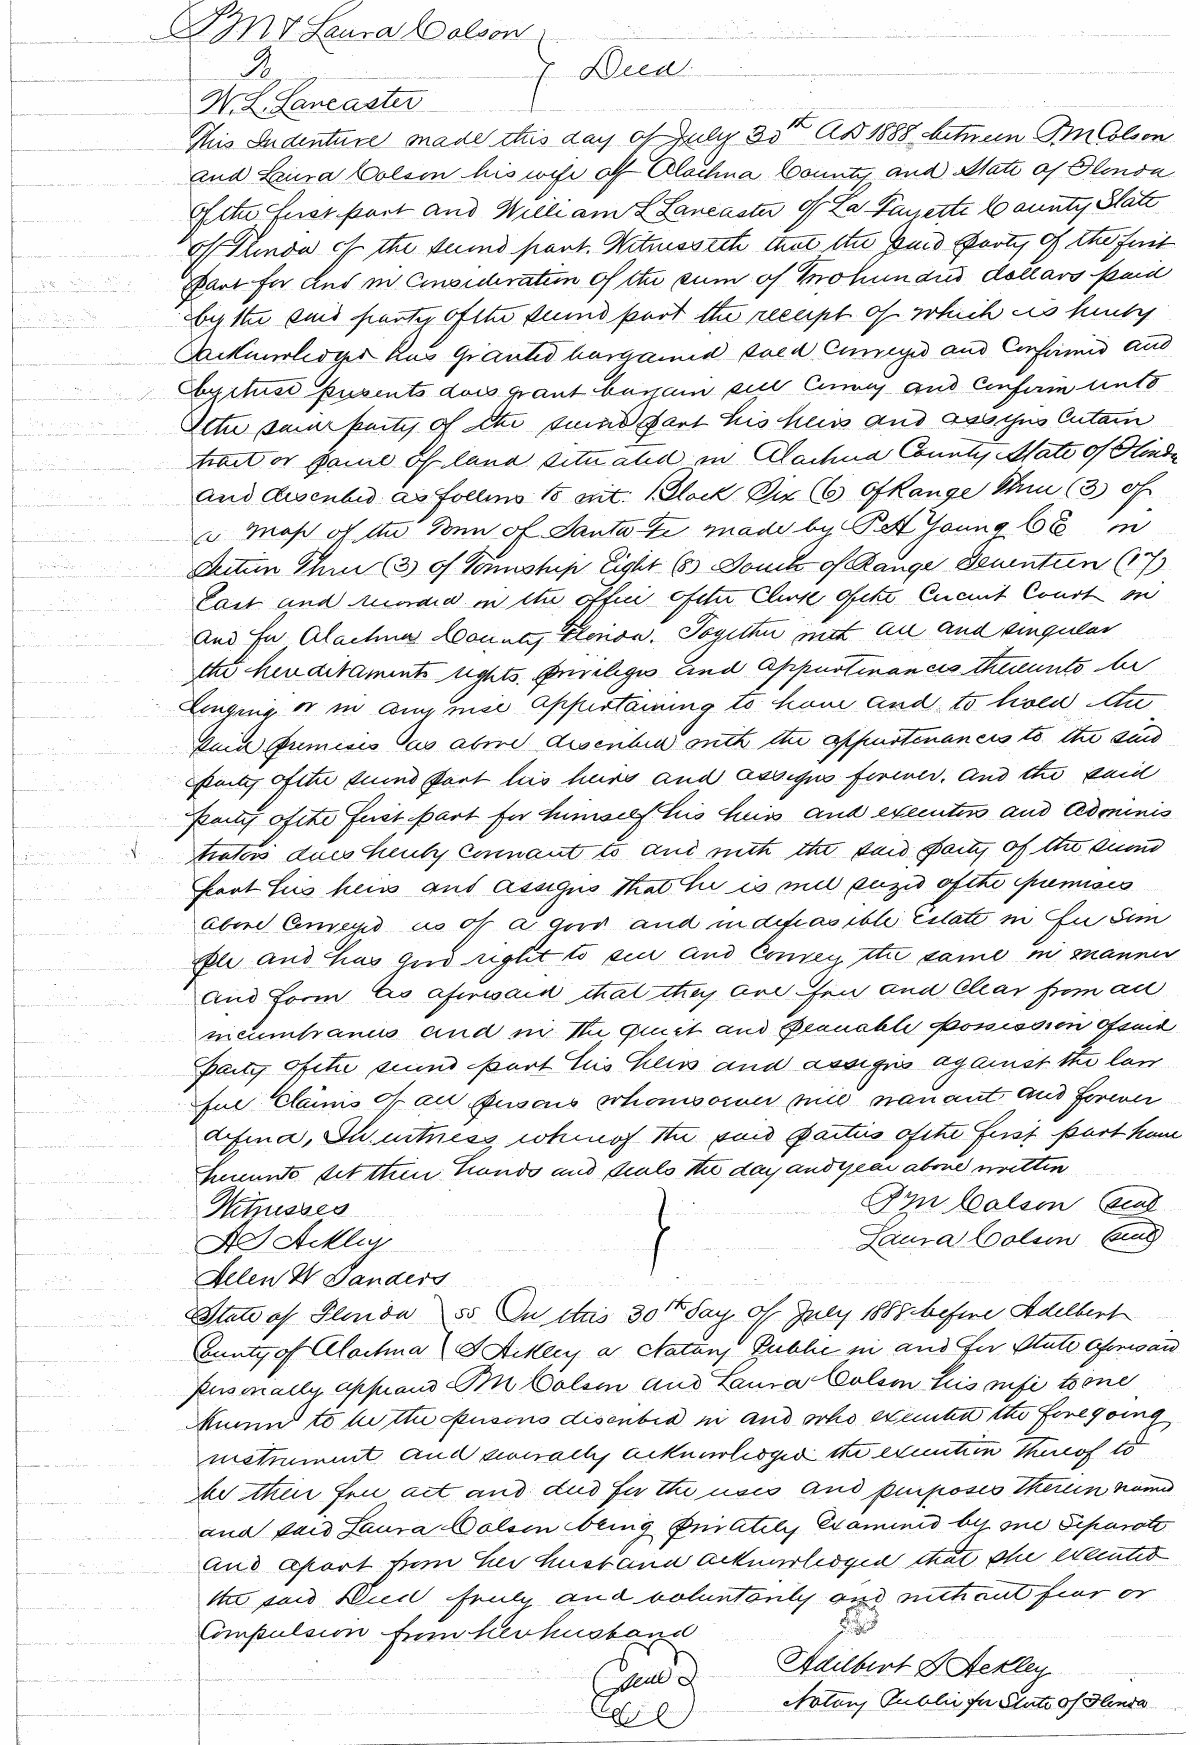 P M & Laura Colson
To } Deed
W. L. Lancaster
This Indenture made this day of July 30th AD 1888 between P. M Colson
and Laura Colson his wife of Alachua County and State of Florida
of the first part and William L Lancaster of La Fayette County State
of Florida of the second part. Witnesseth that the said party of the first
part for and in Consideration of the sum of Two hundred dollars paid
by the said party of the second part the receipt of which is hereby
acknowledged has granted bargained sold Conveyed and Confirmed and
by these presents does grant bargain sell Convey and Confirm unto
the said party of the second part his heirs and assigns Certain
tract or parcel of land situated in Alachua County State of Florida
and described as follows to wit. Block Six (6) of Range Three (3) of
a Map of the Town of Santa Fe made by P A Young C E in
Section Three (3) of Township Eight (8) South of Range Seventeen (17)
East and recorded in the office of the Clerk of the Circuit Court in
and for Alachua County Florida. Together with all and singular
the hereditaments rights privileges and appurtenances thereunto be
longing or in any wise appertaining to have and to hold the
said premises as above described with the appurtenances to the said
party of the second part his heirs and assigns forever. and the said
party of the first part for himself his heirs and executors and Adminis
trators does hereby Covenant to and with the said party of the second
part his heirs and assigns that he is well seized of the premises
above Conveyed as of a good and indefeasible Estate in fee Sim
ple and has good right to sell and Convey the same in manner
and form as aforesaid that they are free and Clear from all
incumbrances and in the quiet and peaceable possession of said
party of the second part his heirs and assigns against the law
ful Claims of all persons whomsoever will warrant and forever
defend, In witness whereof the said parties of the first part have
hereunto set their hands and seals the day and year above written
Witnesses } P M Colson seal
A S Ackley Laura Colson seal
Helen W Sanders
State of Florida } ss On this 30th Day of July 1888 before Adelbert
County of Alachua } S Ackley a Notary Public in and for State aforesaid
personally appeared P M Colson and Laura Colson his wife to me
Known to be the persons described in and who executed the foregoing
instrument and severally acknowledged the execution thereof to
be their free act and deed for the uses and purposes therein named
and said Laura Colson being privately Examined by me Separate
and apart from her husband acknowledged that she executed
the said Deed freely and voluntarily and without fear or
Compulsion from her husband
Seal Adelbert S Ackley
Notary Public for State of Florida